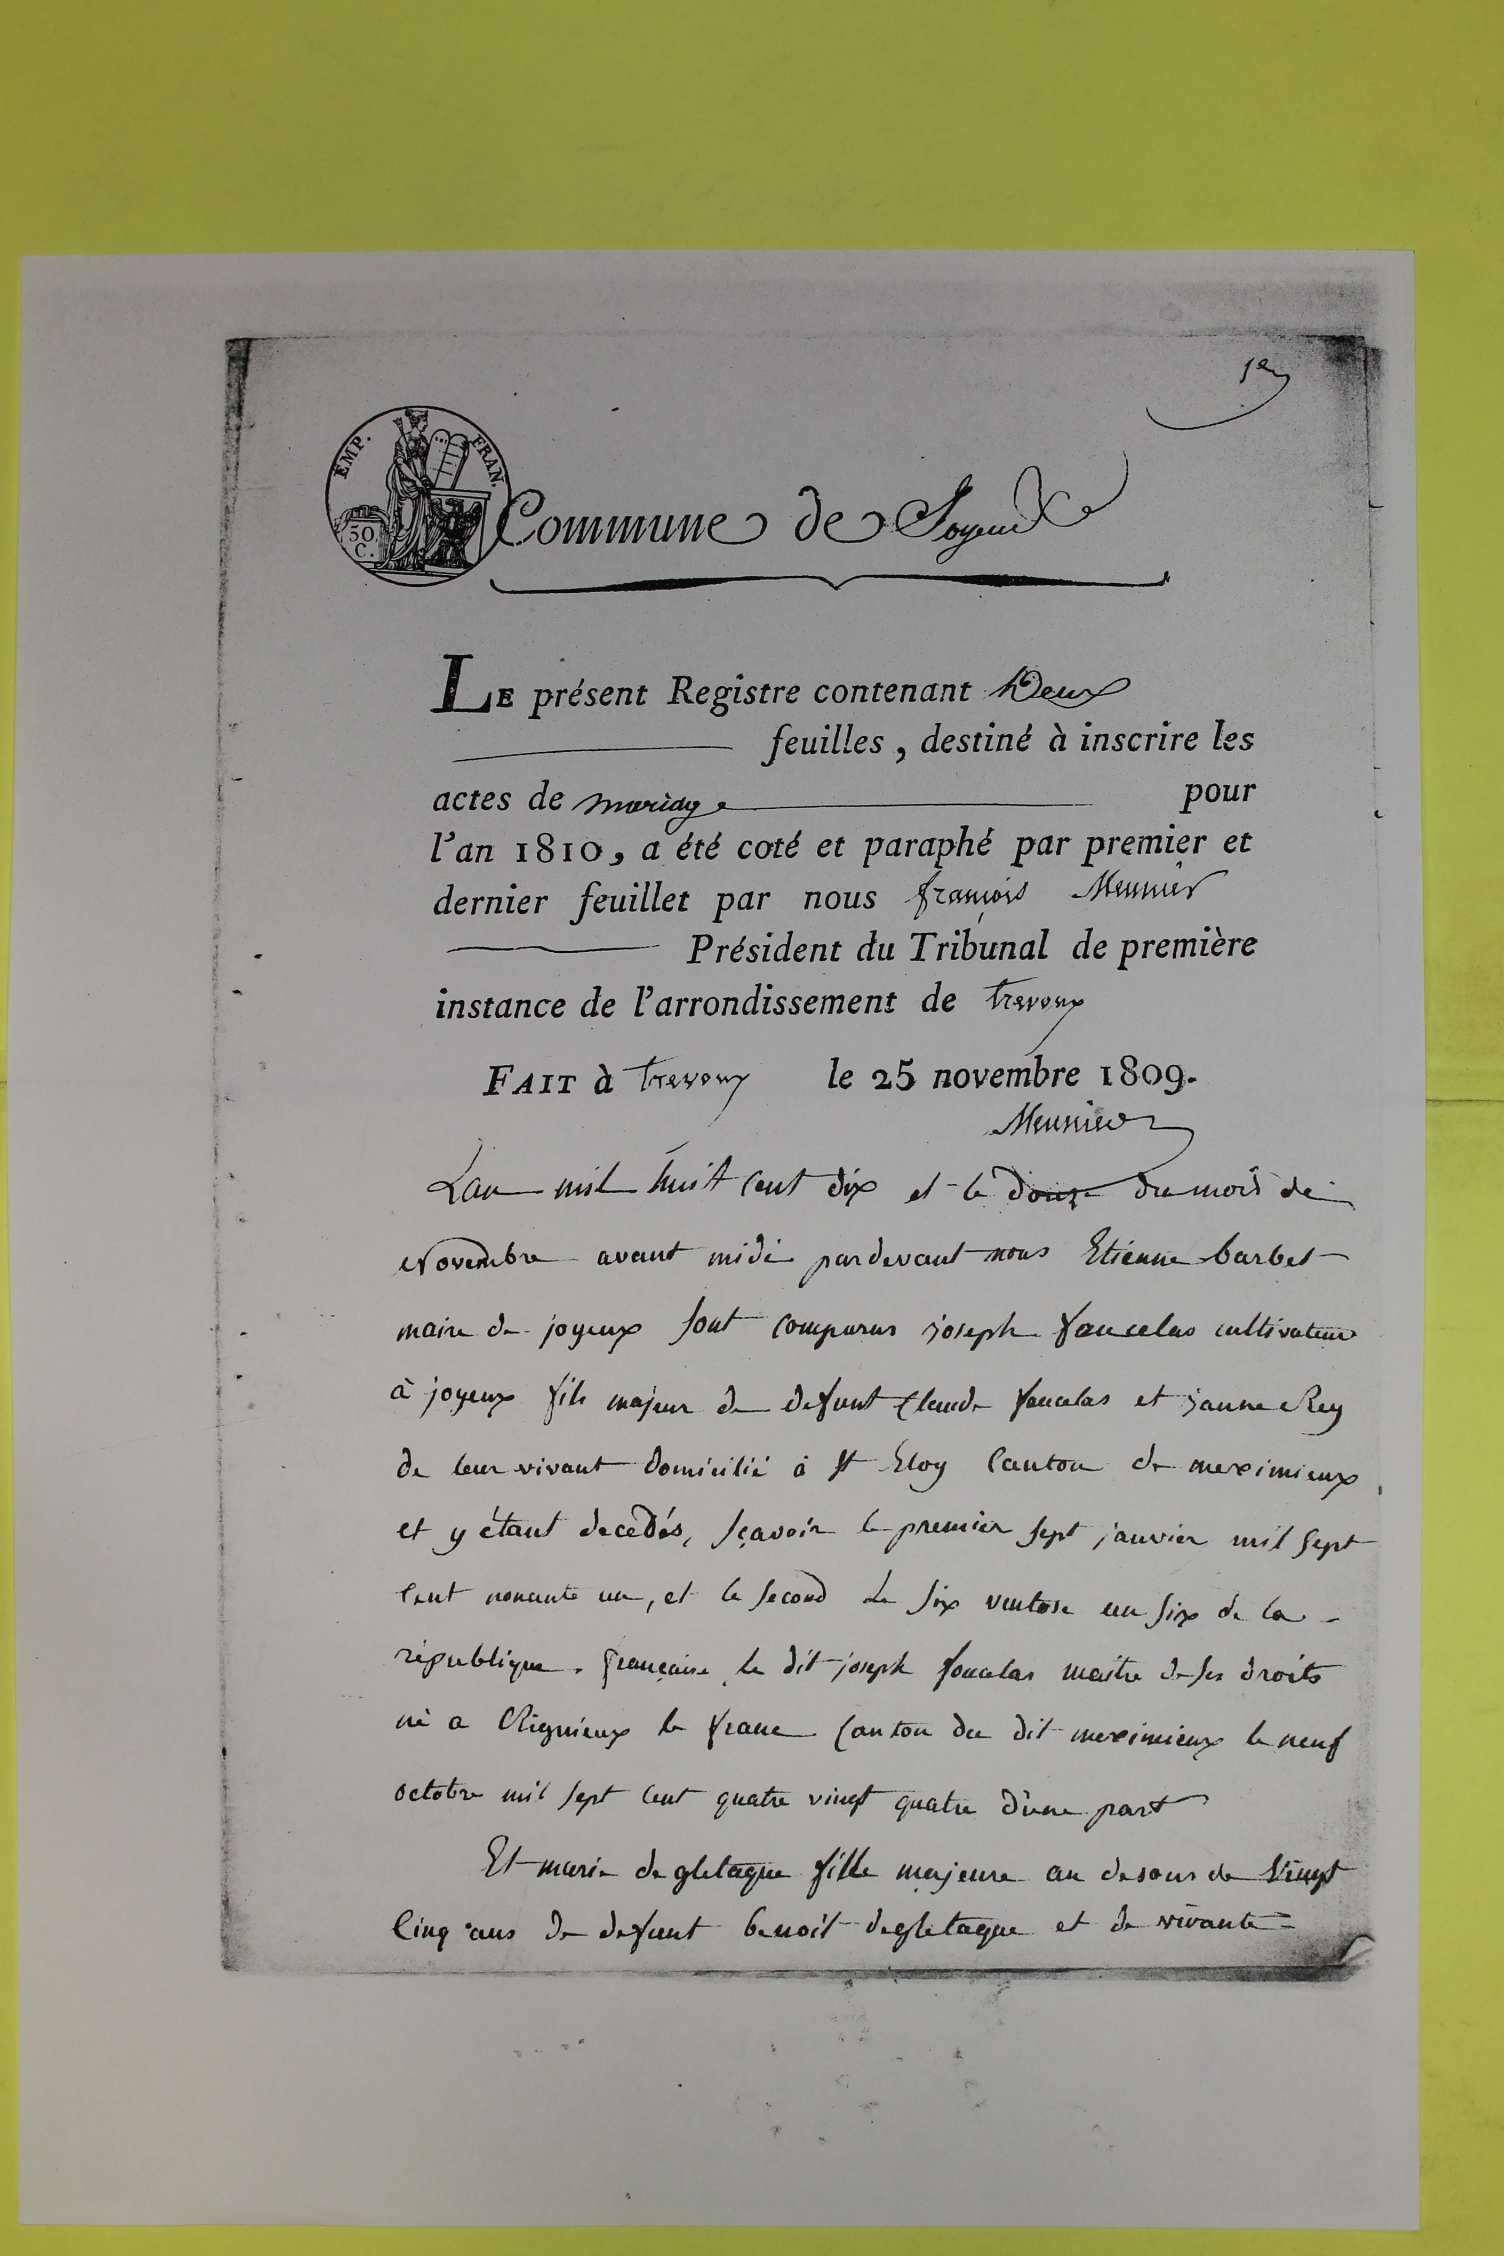 1er
EMP. FRAN.
50 C.
Commune de Joyeux
LE présent Registre contenant Deux
feuilles, destiné à inscrire les
actes de mariage pour
l'an 1810, a été coté et paraphé par premier et
dernier feuillet par nous françois Meunier
Président du Tribunal de première
instance de l'arrondissement de trevoux
FAIT à trevoux le 25 novembre 1809.
Meunier
L'an mil huit cent dix et le douze du mois de
Novembre avant midi pardevant nous Etienne barbet
maire de joyeux sont comparus joseph faucelas cultivateur
à joyeux fils majeur de defunt Claude faucelas et janne Rey
de leur vivant domicilié à st Eloy Canton de meximieux
et y étant decedés, sçavoir le premier sept janvier mil sept
cent nonante un, et le second le six ventose an six de la
république française le dit joseph faucelas maitre de ses droits
né a Rignieux le franc Canton du dit meximieux le neuf
octobre mil sept cent quatre vingt quatre d'une part
Et marie degletagne fille majeure au desous de vingt
Cinq ans de defunt benoit degletagne et de vivante